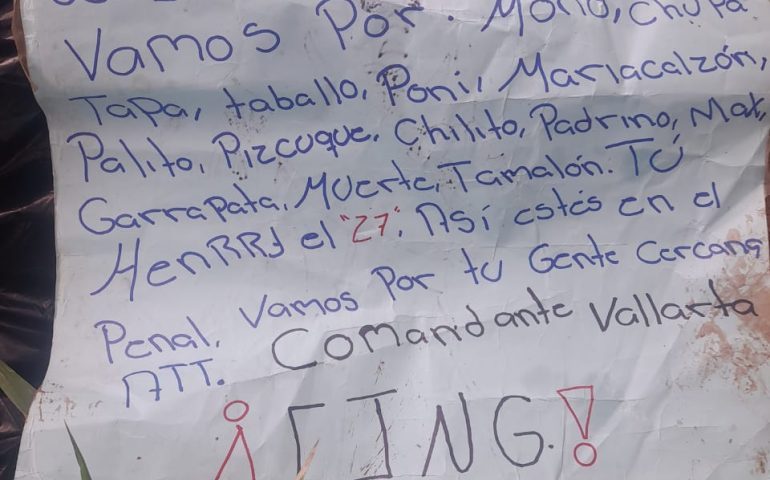 Vamos Por. Mono, chupa
Tapa, taballo, Poni, Mariacalzón,
Palito, Pizcoque, Chilito, Padrino, Max,
Garrapata, Muerte, Tamalón. Tú
HenRRy el "27". Así estés en el
Penal, Vamos Por tu Gente Cercana
ATT. Comandante Vallarta